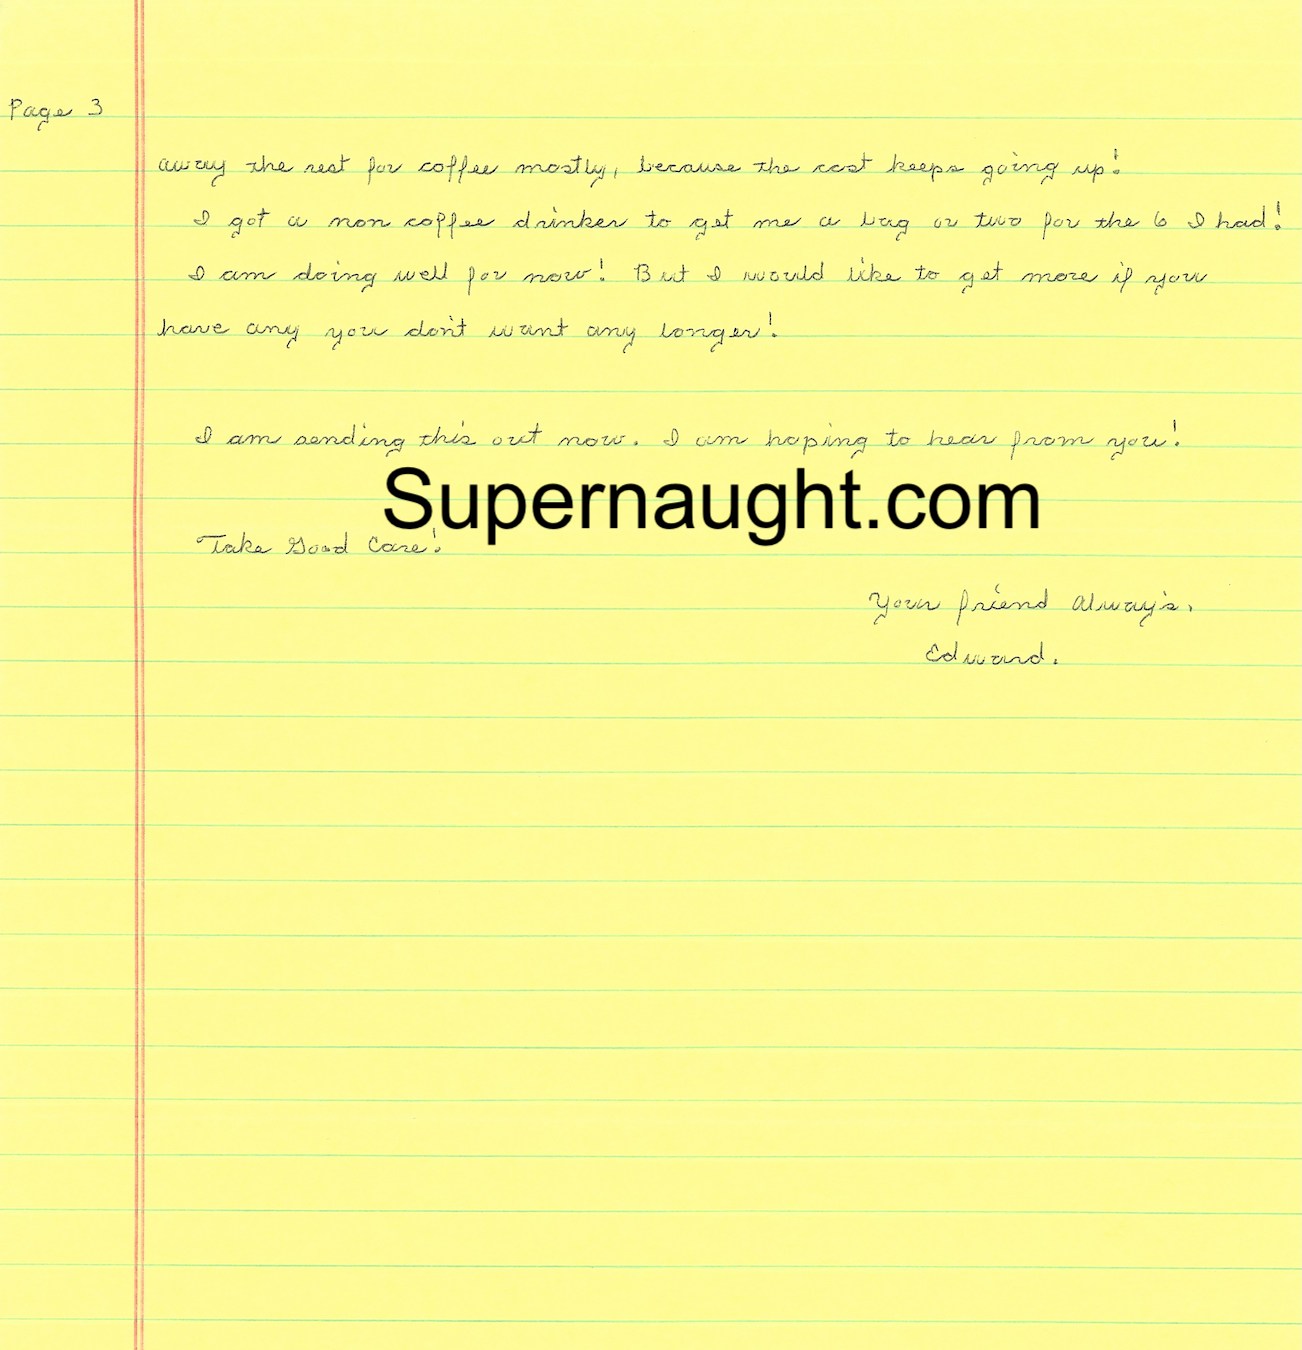 Page 3
away the rest for coffee mostly, because the cost keeps going up!
I got a non coffee drinker to get me a bag or two for the 6 I had!
I am doing well for now! But I would like to get more if you
have any you don't want any longer!
I am sending this out now. I am hoping to hear from you!
Supernaught.com
Take Good Care!
Your friend Always,
Edward.